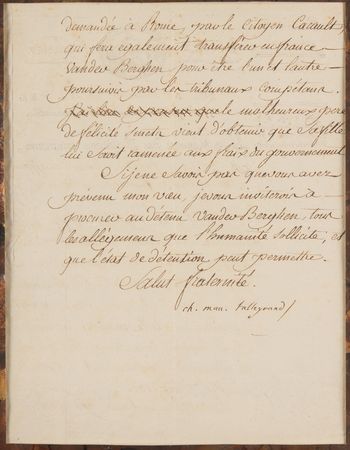 demandée à Rome, par le citoyen Cacault
qui fera également transférer en france
Vanden Berghen pour être l'un et l'autre
poursuivis par les tribunaux compétens.
le malheureux père
de félicité Smets vient d'obtenir que sa fille
lui soit ramenée aux fraix du gouvernement
Si je ne savois pas que vous avez
prévenu mon vœu, je vous inviterois à
procurer au détenu Vanden Berghen, tous
les allégemens que l'humanité sollicite, et
que l'état de détention peut permettre.
Salut fraternité.
ch. mau. talleyrand